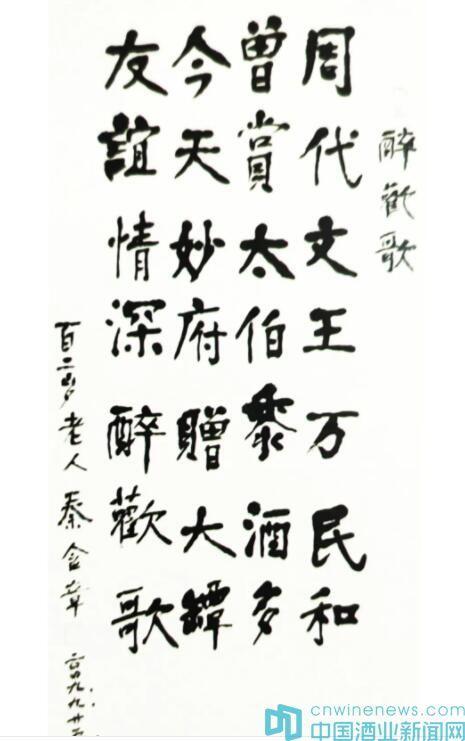 醉歡歌
周代文王万民和
曾賞太伯黍酒多
今天妙府贈大罈
友誼情深醉歡歌
百二岁老人秦含章
二〇〇九.九.廿
cnwinenews.com
中国酒业新闻网